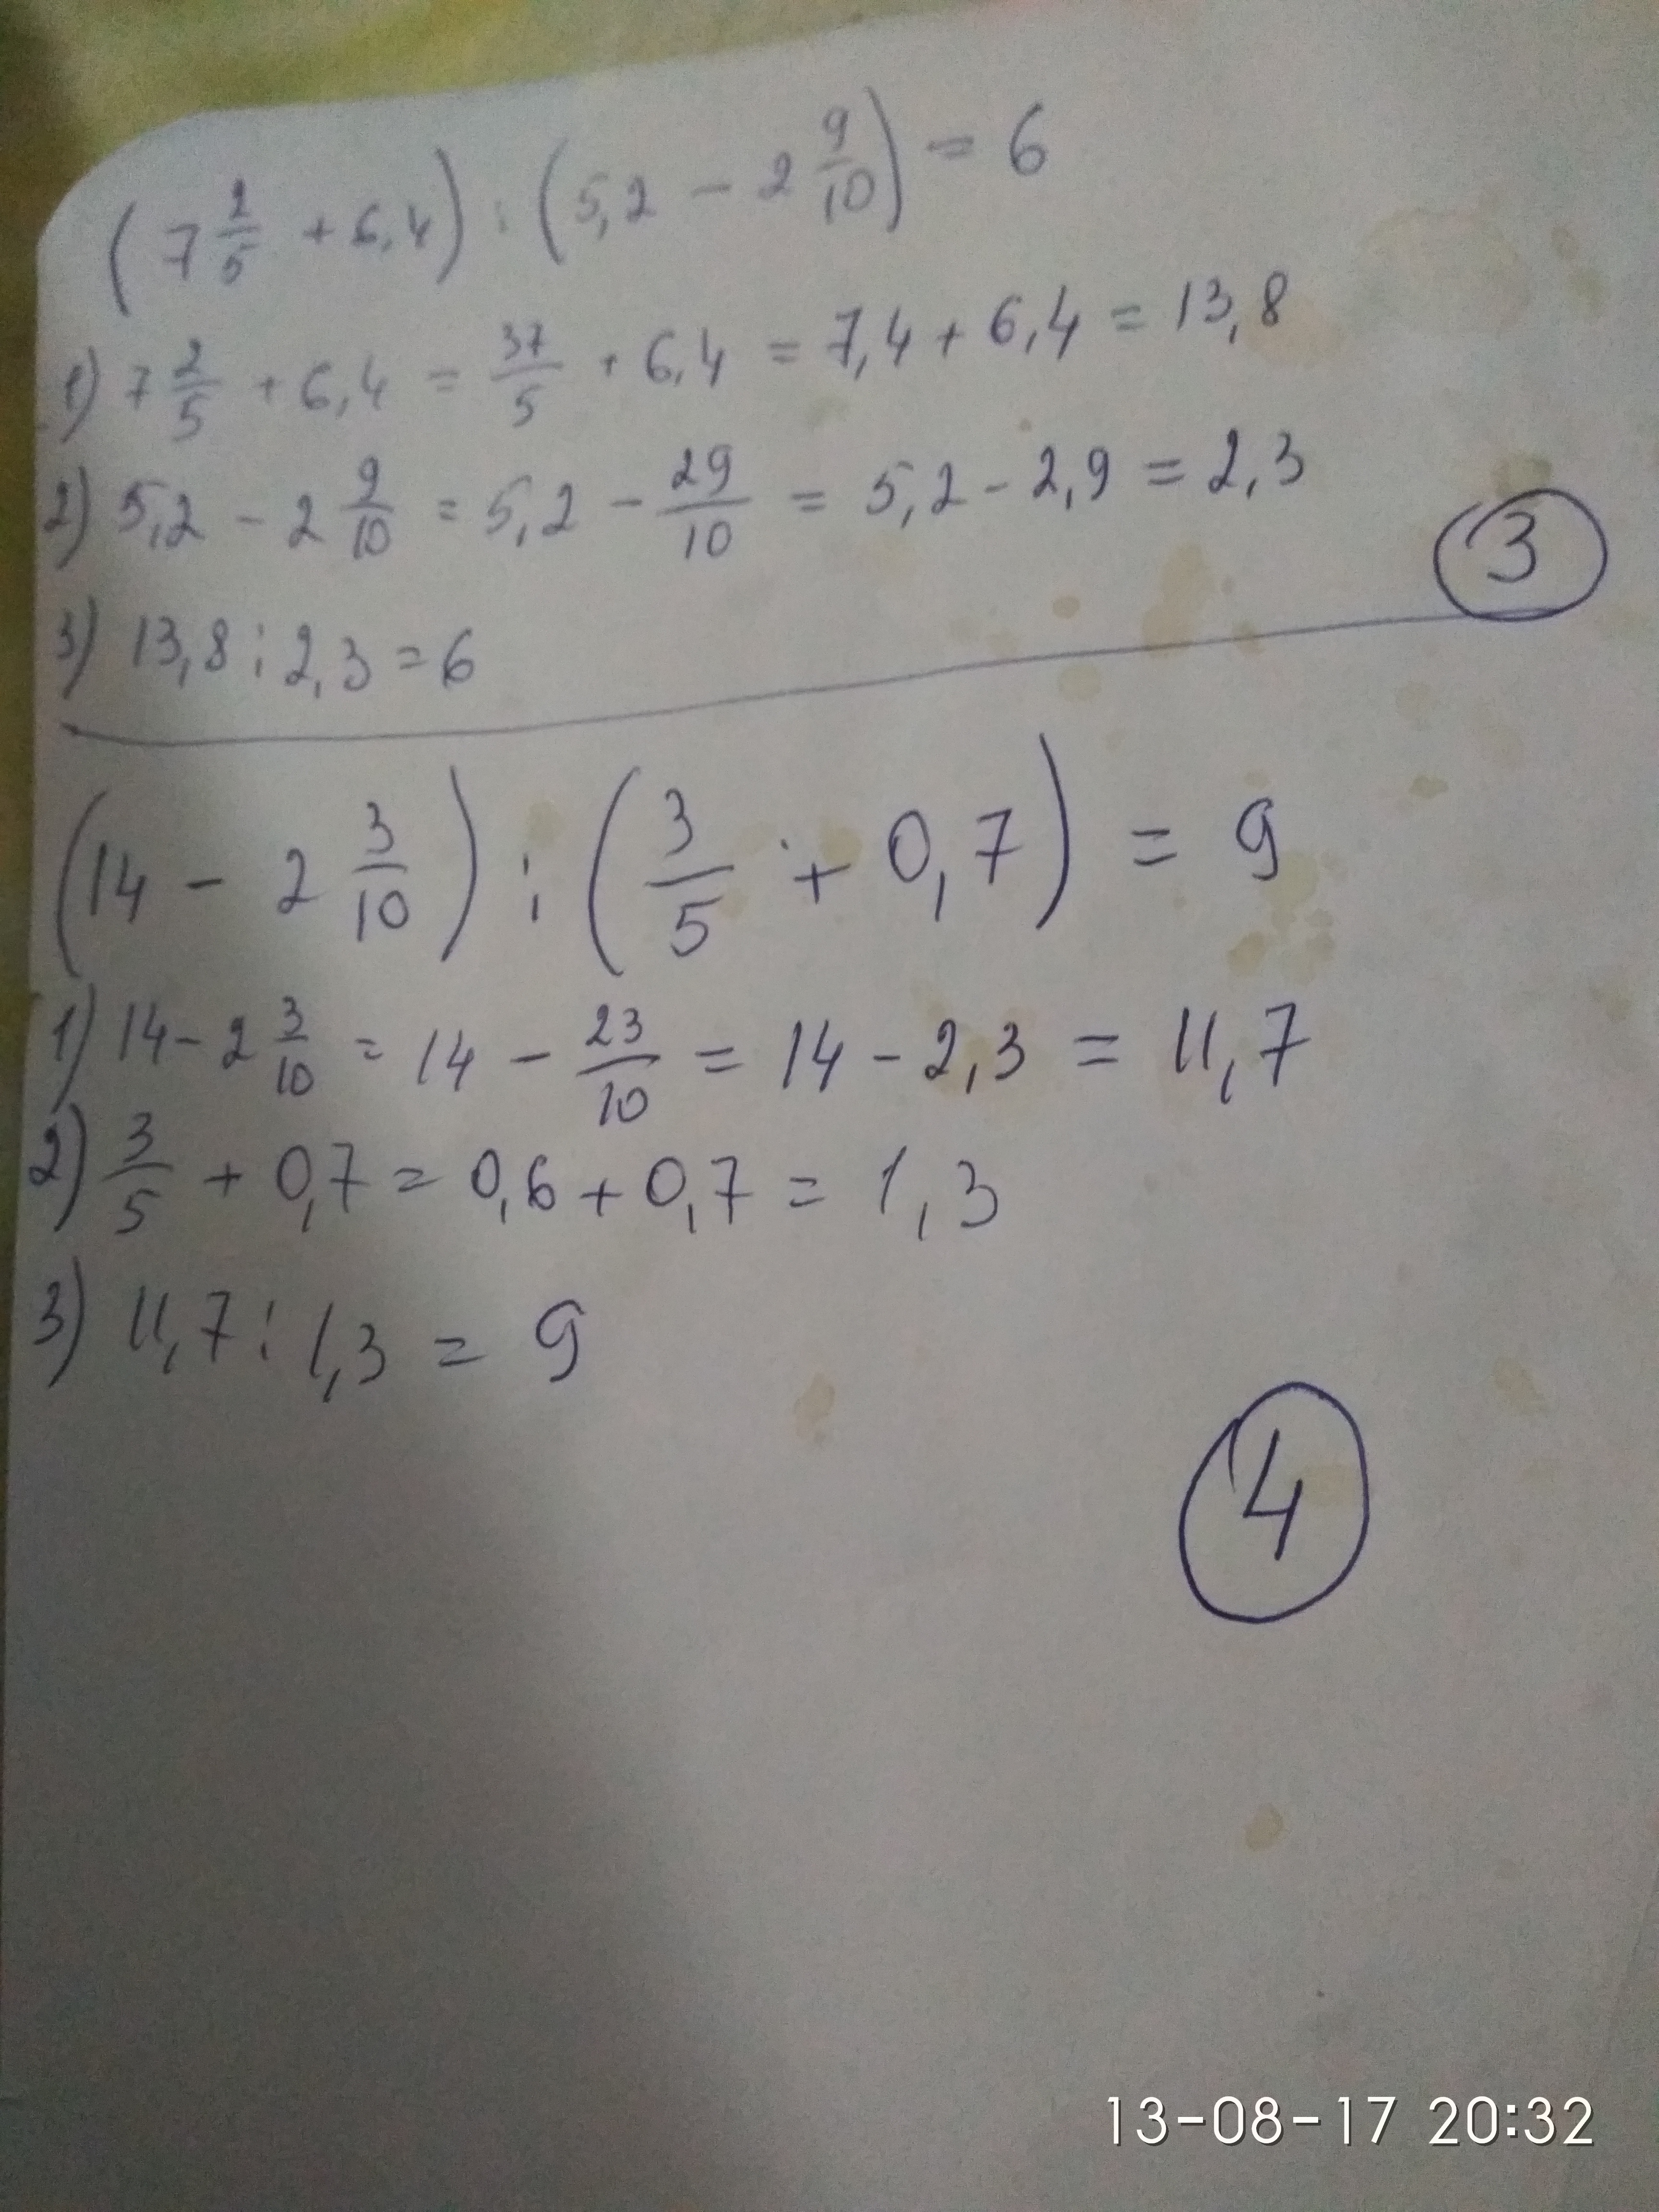 (7 2/5 + 6,4) : (5,2 - 2 9/10) = 6
1) 7 2/5 + 6,4 = 37/5 + 6,4 = 7,4 + 6,4 = 13,8
2) 5,2 - 2 9/10 = 5,2 - 29/10 = 5,2 - 2,9 = 2,3
3) 13,8 : 2,3 = 6
3
(14 - 2 3/10) : (3/5 + 0,7) = 9
1) 14 - 2 3/10 = 14 - 23/10 = 14 - 2,3 = 11,7
2) 3/5 + 0,7 = 0,6 + 0,7 = 1,3
3) 11,7 : 1,3 = 9
4
13-08-17 20:32